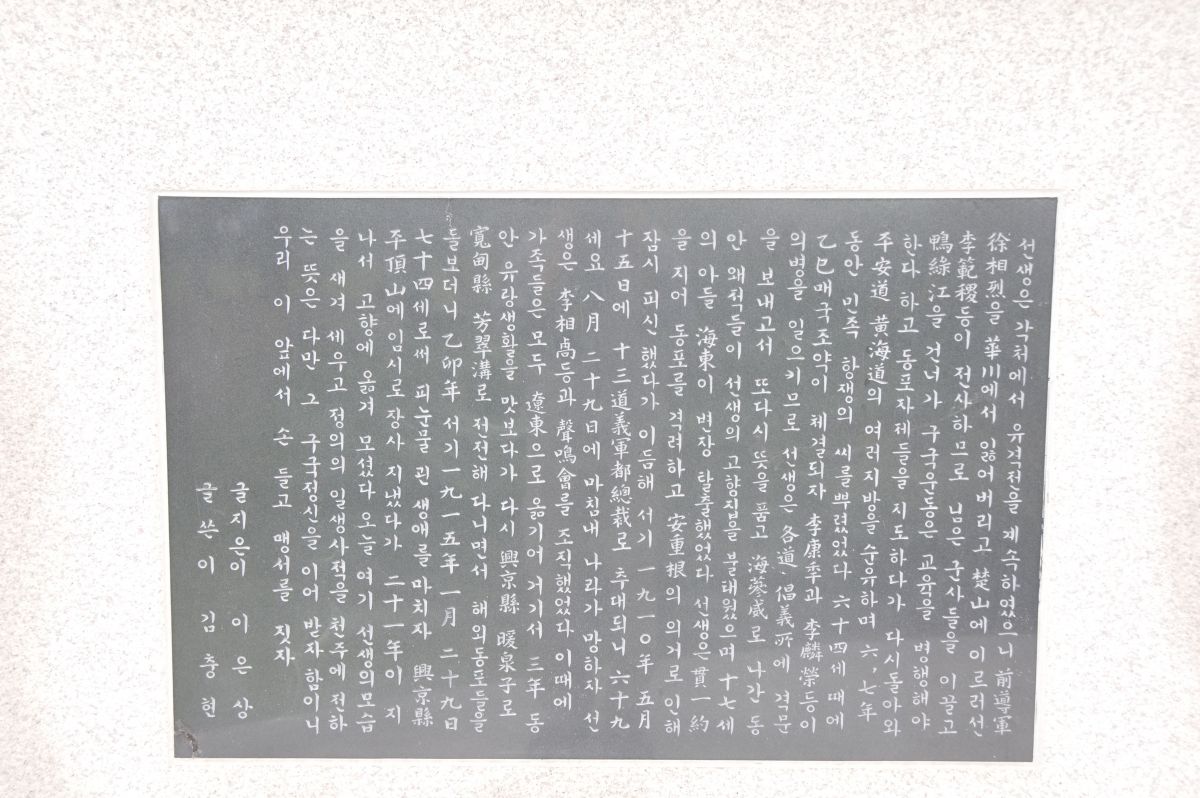 선생은 각처에서 유격전을 계속하였으니 前導軍
徐相烈을 華川에서 잃어버리고 楚山에 이르러선
李範稷등이 전사하므로 남은 군사들을 이끌고
鴨綠江을 건너가 구국운동은 교육을 병행해야
한다 하고 동포자제들을 지도하다가 다시돌아와
平安道 黃海道의 여러지방을 순유하며 六,七年
동안 민족 항쟁의 씨를뿌렸었다 六十四세 때에
乙巳매국조약이 체결되자 李康季과 李麟榮등이
의병을 일으키므로 선생은 各道 倡義所에 격문
을 보내고서 또다시 뜻을 품고 海蔘威로 나간 동
안 왜적들이 선생의 고향집을 불태웠으며 十七세
의 아들 海東이 변장 탈출했었다 선생은 貫一約
을 지어 동포를 격려하고 安重根의 의거로 인해
잠시 피신했다가 이듬해 서기 一九一○年 五月
十五日에 十三道義軍都總裁로 추대되니 六十九
세요 八月 二十九日에 마침내 나라가 망하자 선
생은 李相卨등과 聲鳴會를 조직했었다 이때에
가족들은 모두 遼東으로 옮기어 거기서 三年 동
안 유랑생활을 맛보다가 다시 興京縣 暖泉子로
寬甸縣 芳翠溝로 전전해 다니면서 해외동포들을
돌보더니 乙卯年 서기一九一五年 一月 二十九日
七十四세로써 피눈물 괸 생애를 마치자 興京縣
平頂山에 임시로장사 지냈다가 二十一年이 지
나서 고향에 옮겨 모셨다 오늘 여기 선생의모습
을 새겨 세우고 정의의 일생사적을 천추에 전하
는 뜻은 다만 그 구국정신을 이어 받자 함이니
우리 이 앞에서 손 들고 맹서를 짓자
글지은이 이은상
글쓴이 김충현